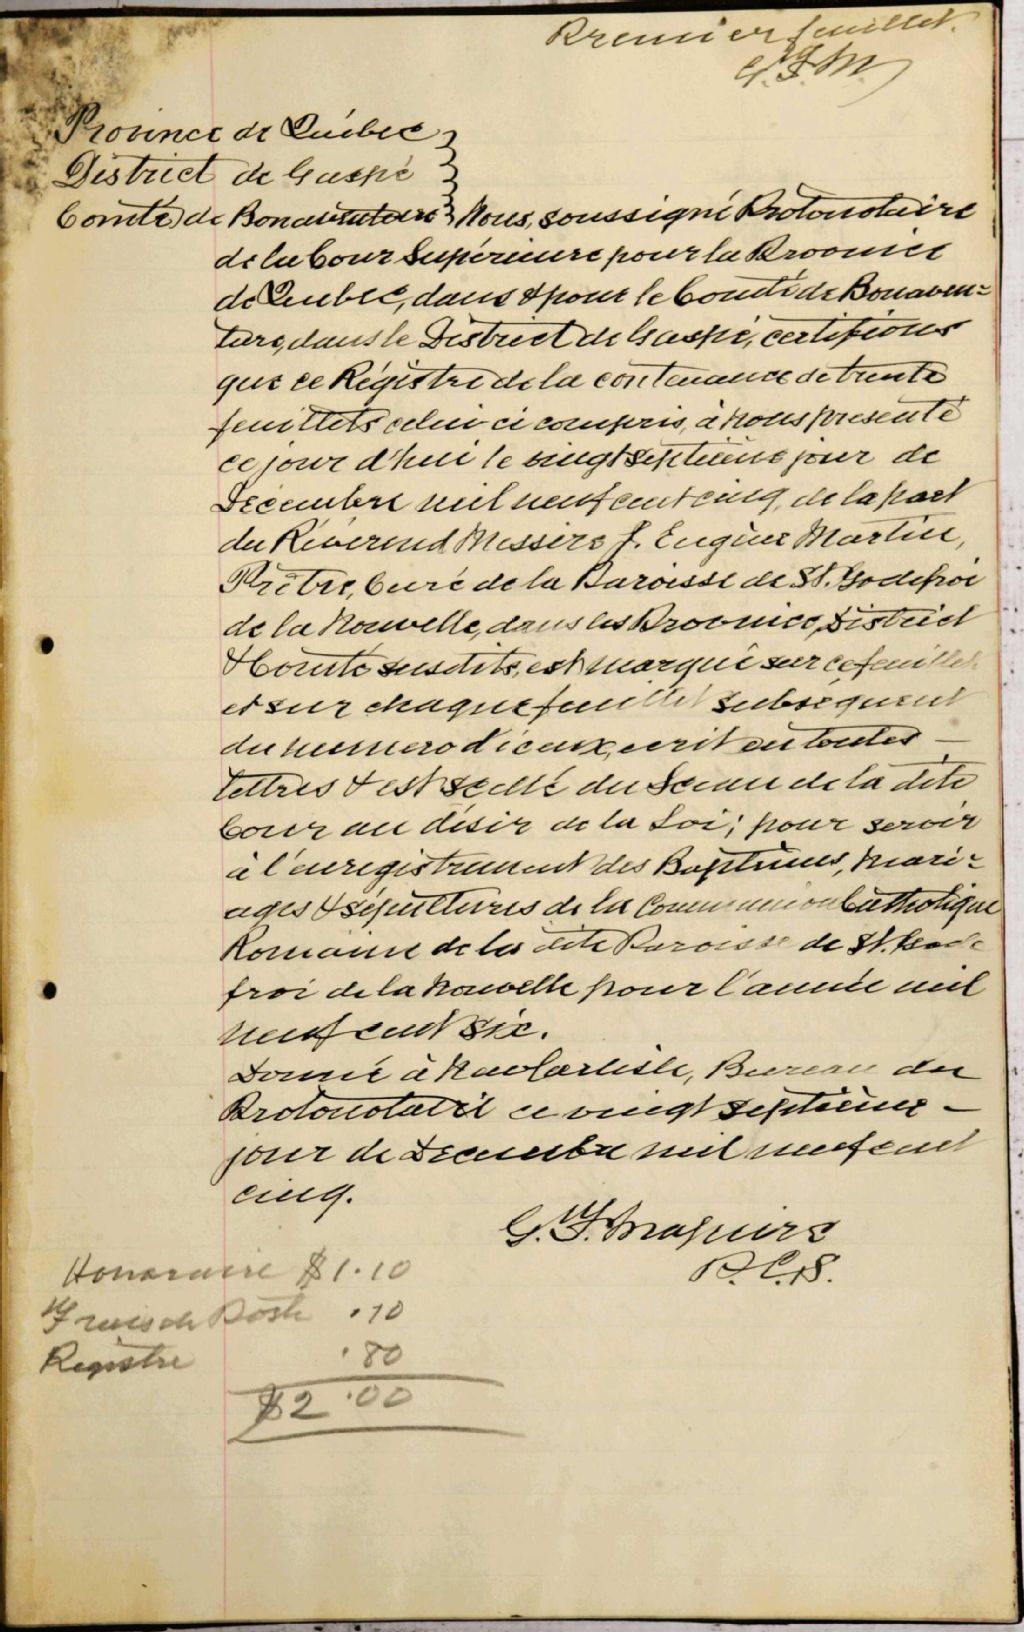 Premier feuillet.
G. F. M.
Province de Québec
District de Gaspé
Comté de Bonaventure Nous, soussigné Protonotaire
de la Cour Supérieure pour la Province
de Quebec, dans & pour le Comté de Bonaven=
ture, dans le District de Gaspé, certifions
que ce Régistre de la contenance de trente
feuillets celui ci compris, à nous presenté
ce jour d'hui le vingt septième jour de
Décembre mil neuf cent cinq, de la part
du Révérend Messire J. Eugène Martin,
Prêtre, Curé de la Paroisse de St. Godefroi
de la Nouvelle, dans les Province, District
& Comté susdits, est marqué sur ce feuillet
et sur chaque feuillet subséquent
du numero d'iceux, ecrit en toutes —
lettres & est scellé du Sceau de la dite
Cour au désir de la Loi; pour servir
à l'enregistrement des Baptêmes, Mari=
ages & sépultures de la Communion Catholique
Romaine de la dite Paroisse de St. Gode
froi de la Nouvelle pour l'année mil
neuf cent six.
Donné à New Carlisle, Bureau du
Protonotaire ce vingt septième —
jour de Decembre mil neuf cent
cinq.
G. F. Maguire
P. C. S.
Honoraire $1.10
Frais de Poste .10
Registre .80
$2.00